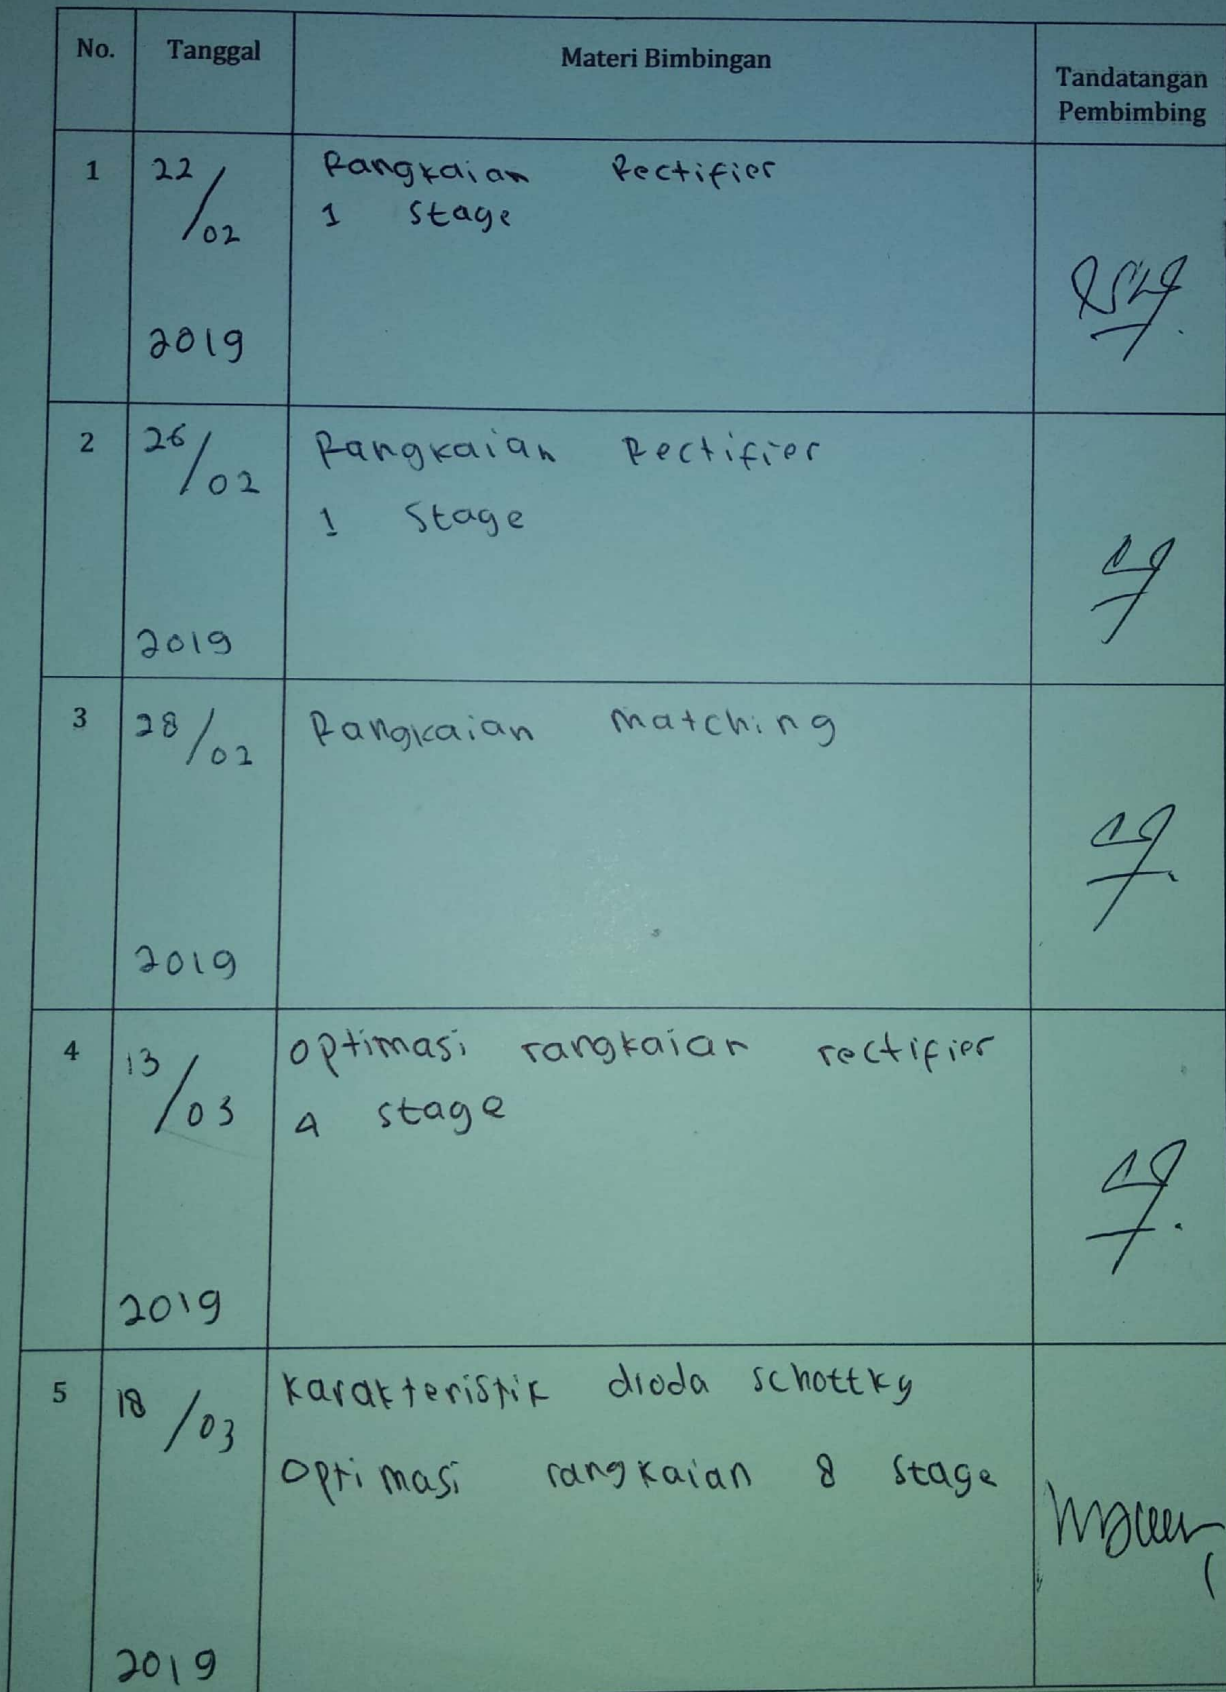 No. Tanggal Materi Bimbingan Tandatangan
Pembimbing
1 22/02 Rangkaian Rectifier
1 Stage
2019
2 26/02 Rangkaian Rectifier
1 Stage
2019
3 28/02 Rangkaian matching
2019
4 13/03 optimasi rangkaian rectifier
4 stage
2019
5 18/03 karakteristik dioda schottky
Optimasi rangkaian 8 stage
2019